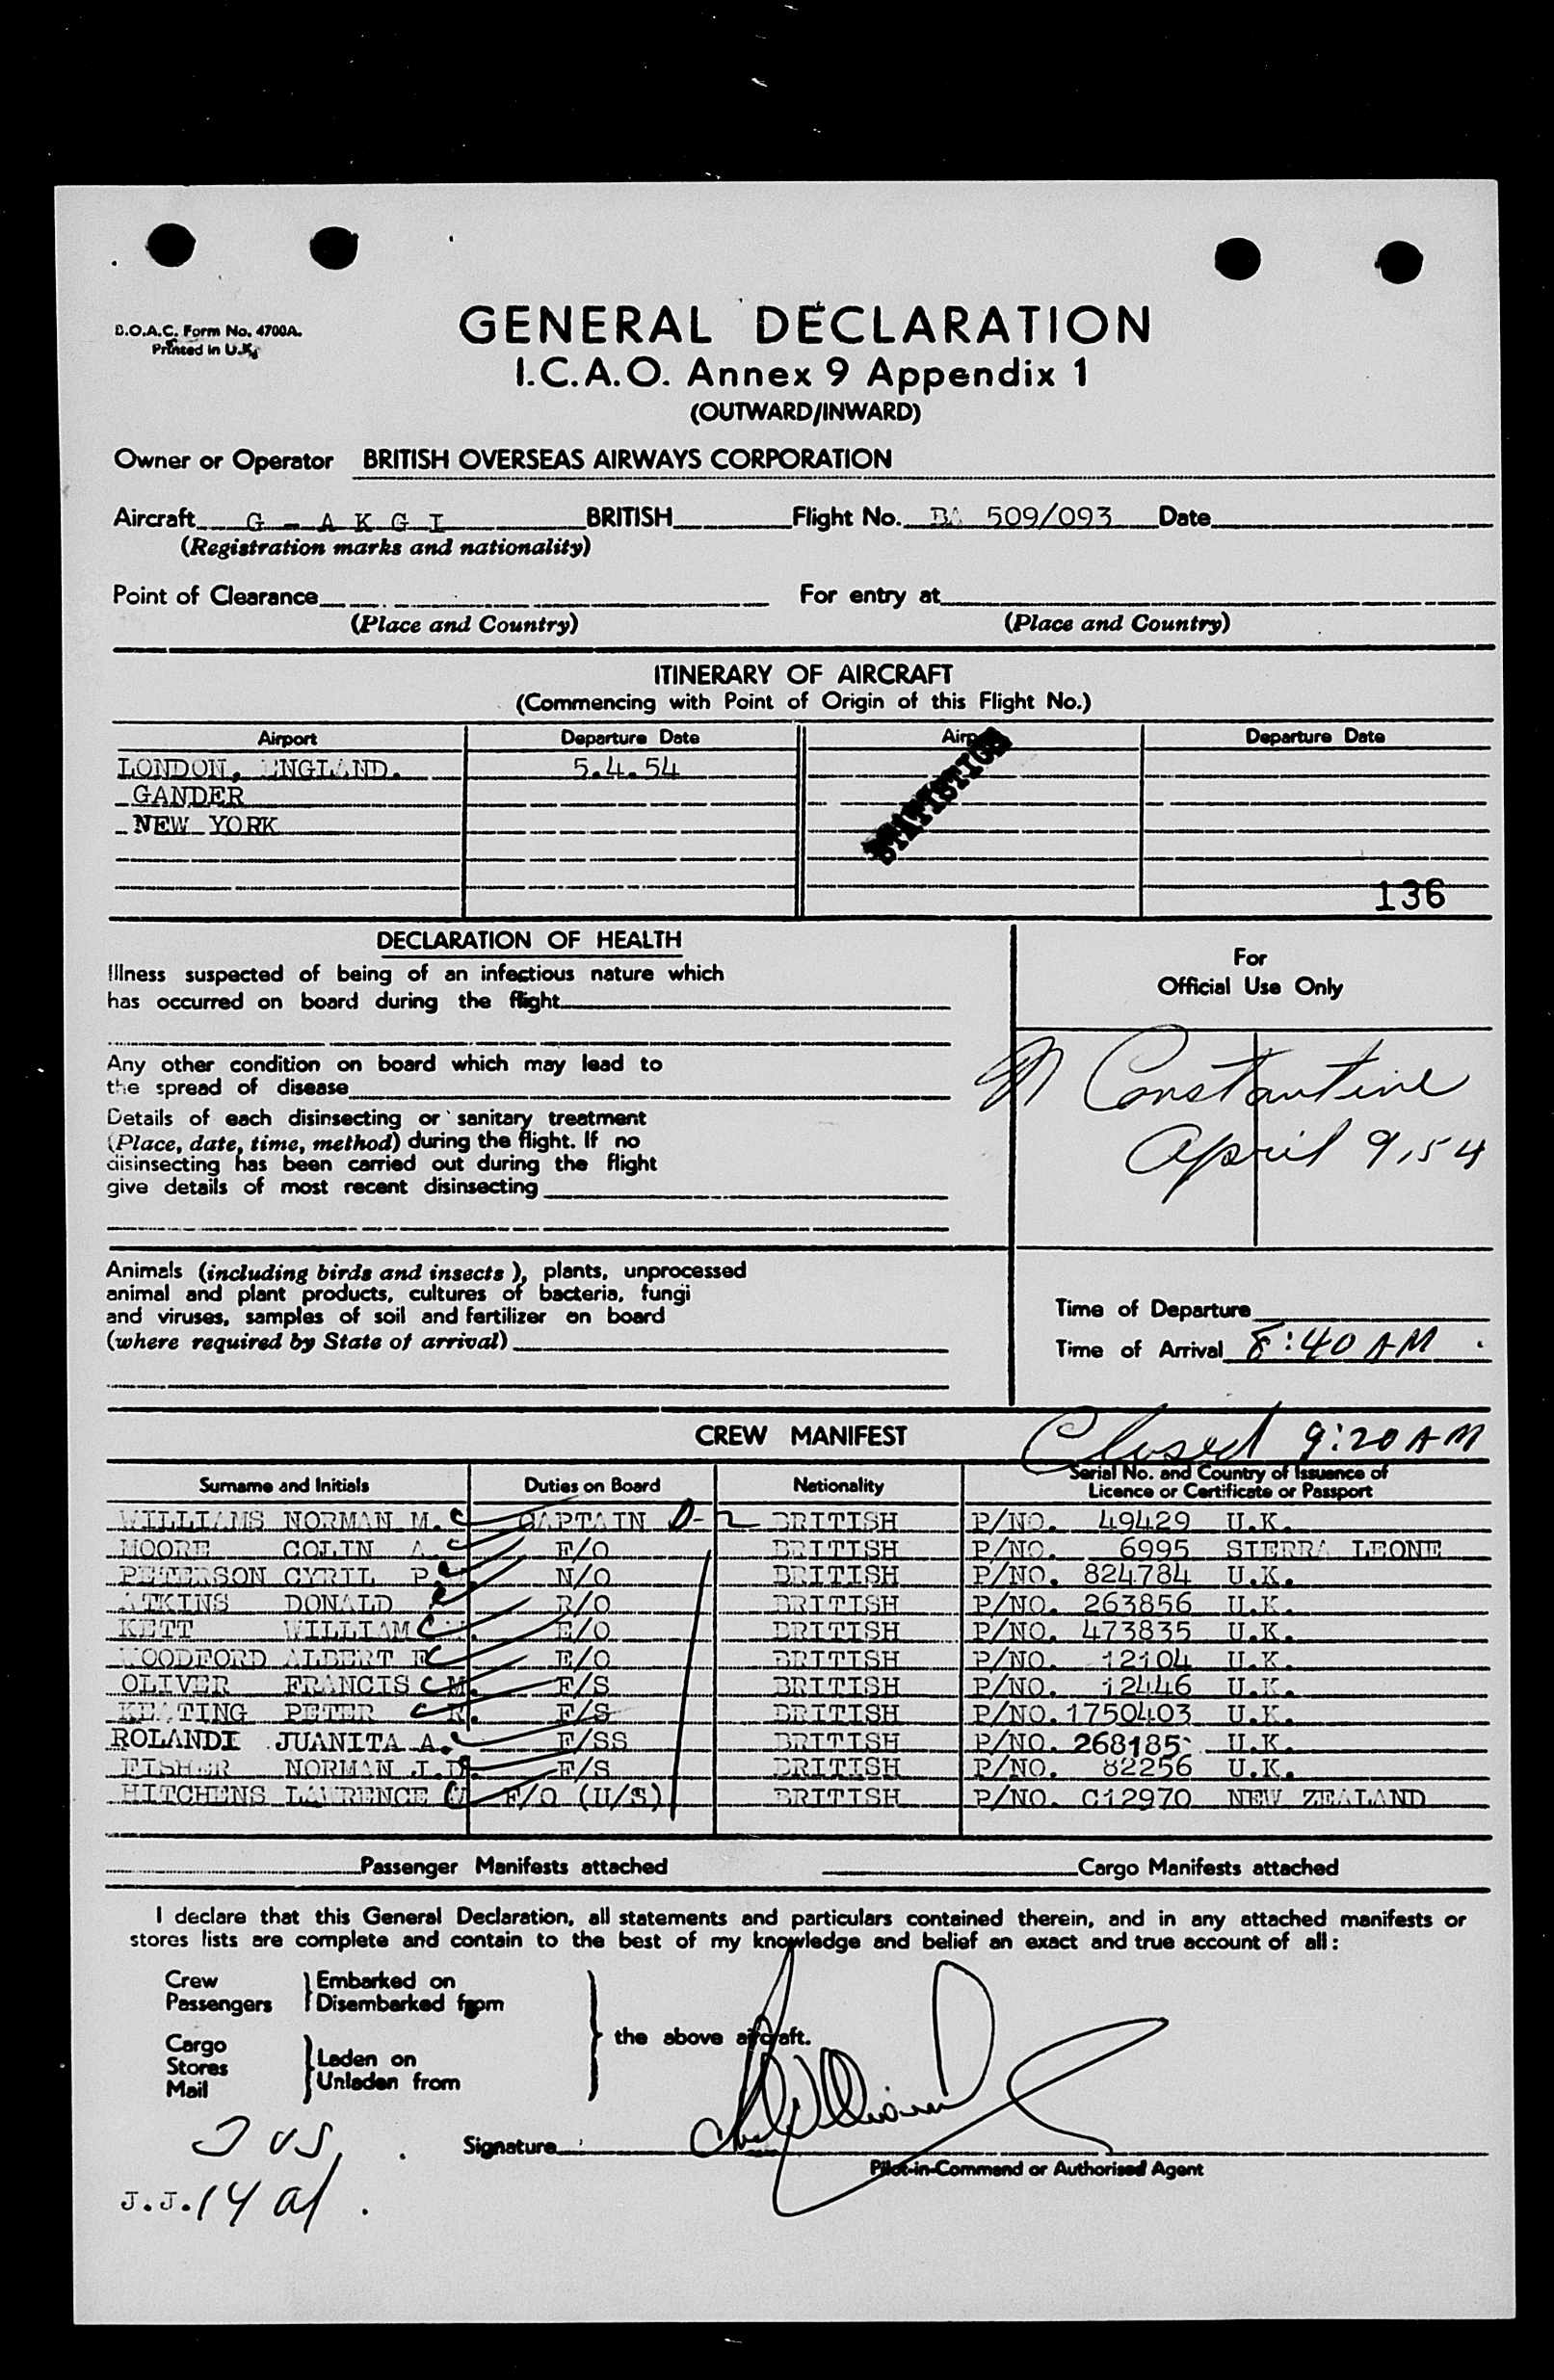 B.O.A.C. Form No. 4700A.
Printed in U.K.
GENERAL DECLARATION
I.C.A.O. Annex 9 Appendix 1
(OUTWARD/INWARD)
Owner or Operator BRITISH OVERSEAS AIRWAYS CORPORATION
Aircraft G - A K G I BRITISH Flight No. BA 509/093 Date
(Registration marks and nationality)
Point of Clearance For entry at
(Place and Country) (Place and Country)
ITINERARY OF AIRCRAFT
(Commencing with Point of Origin of this Flight No.)
Airport Departure Date Airport Departure Date
LONDON, ENGLAND. 5.4.54
GANDER
NEW YORK
STATISTICS
136
DECLARATION OF HEALTH
Illness suspected of being of an infectious nature which
has occurred on board during the flight
Any other condition on board which may lead to
the spread of disease
Details of each disinsecting or sanitary treatment
(Place, date, time, method) during the flight. If no
disinsecting has been carried out during the flight
give details of most recent disinsecting
For
Official Use Only
M Constantine
April 9, 54
Animals (including birds and insects), plants, unprocessed
animal and plant products, cultures of bacteria, fungi
and viruses, samples of soil and fertilizer on board
(where required by State of arrival)
Time of Departure
Time of Arrival 8:40 AM
CREW MANIFEST Closed 9:20 AM
Surname and Initials Duties on Board Nationality Serial No. and Country of Issuance of
Licence or Certificate or Passport
WILLIAMS NORMAN M. C CAPTAIN D-2 BRITISH P/NO. 49429 U.K.
MOORE COLIN A. C F/O BRITISH P/NO. 6995 SIERRA LEONE
PETERSON CYRIL P N/O BRITISH P/NO. 824784 U.K.
ATKINS DONALD R/O BRITISH P/NO. 263856 U.K.
KETT WILLIAM C E/O BRITISH P/NO. 473835 U.K.
WOODFORD ALBERT E C E/O BRITISH P/NO. 12104 U.K.
OLIVER FRANCIS C M. F/S BRITISH P/NO. 12446 U.K.
KEATING PETER C F/S BRITISH P/NO. 1750403 U.K.
ROLANDI JUANITA A. C F/SS BRITISH P/NO. 268185 U.K.
FISHER NORMAN J.D. F/S BRITISH P/NO. 82256 U.K.
HITCHENS LAWRENCE F/O (U/S) BRITISH P/NO. C12970 NEW ZEALAND
Passenger Manifests attached Cargo Manifests attached
I declare that this General Declaration, all statements and particulars contained therein, and in any attached manifests or
stores lists are complete and contain to the best of my knowledge and belief an exact and true account of all:
Crew Embarked on
Passengers Disembarked from
the above aircraft.
Cargo
Stores Laden on
Mail Unladen from
Signature
Pilot-in-Command or Authorised Agent
J.J. 14 al